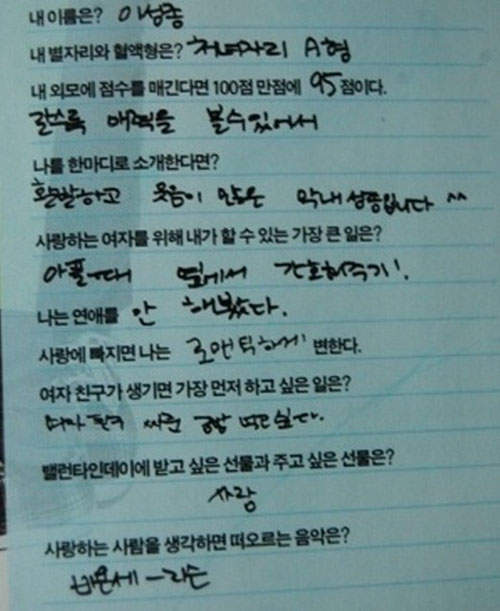 내 이름은? 이성종
내 별자리와 혈액형은? 처녀자리 A형
내 외모에 점수를 매긴다면 100점 만점에 95점이다.
갈수록 매력을 볼수있어서
나를 한마디로 소개한다면?
활발하고 웃음이 많은 막내 성종입니다 ^^
사랑하는 여자를 위해 내가 할 수 있는 가장 큰 일은?
아플때 옆에서 간호해주기!
나는 연애를 안 해봤다.
사랑에 빠지면 나는 로맨틱하게 변한다.
여자 친구가 생기면 가장 먼저 하고 싶은 일은?
싸주고싶다.
밸런타인데이에 받고 싶은 선물과 주고 싶은 선물은?
사랑
사랑하는 사람을 생각하면 떠오르는 음악은?
비욘세 - 리슨